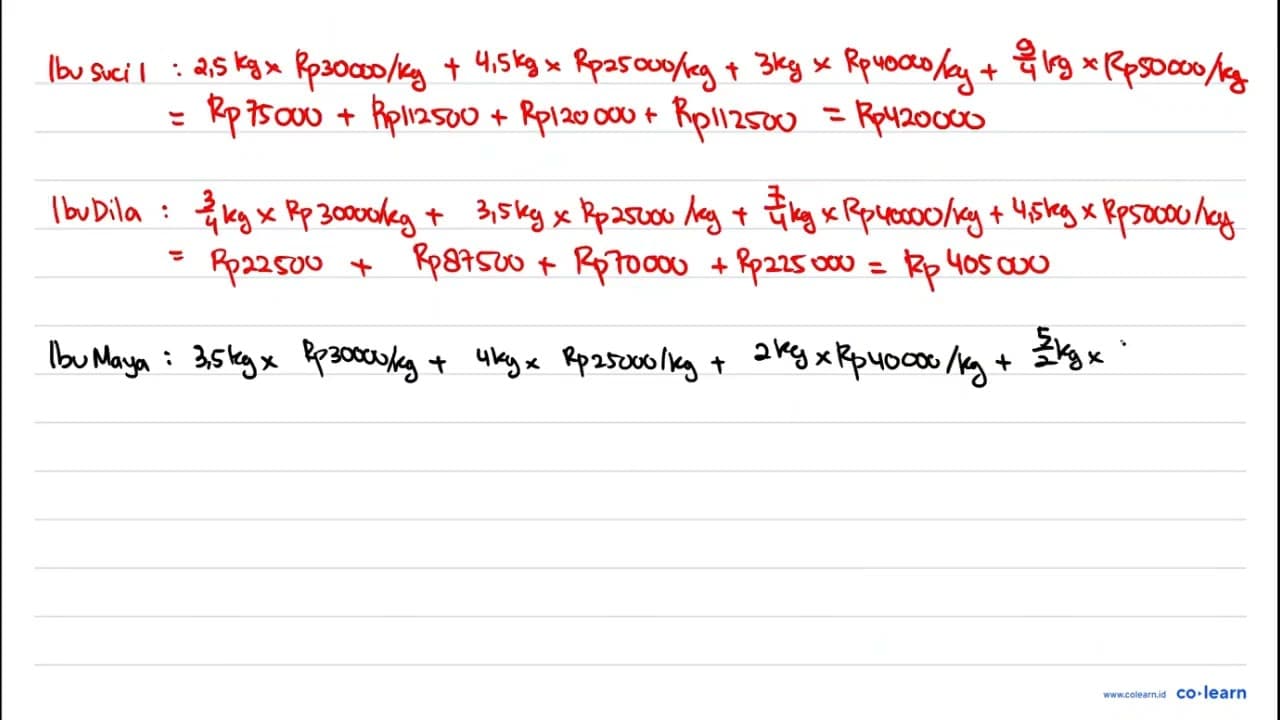 Ibu Suci 1 : 2,5 kg x Rp30000/kg + 4,5kg x Rp25000/kg + 3kg x Rp40000/kg + 9/4 kg x Rp50000/kg
= Rp75000 + Rp112500 + Rp120000 + Rp112500 = Rp420000
Ibu Dila : 3/4 kg x Rp30000/kg + 3,5kg x Rp25000/kg + 7/4 kg x Rp40000/kg + 4,5kg x Rp50000/kg
= Rp22500 + Rp87500 + Rp70000 + Rp225000 = Rp405000
Ibu Maya : 3,5kg x Rp30000/kg + 4kg x Rp25000/kg + 2kg x Rp40000/kg + 5/2 kg x
www.colearn.id co·learn